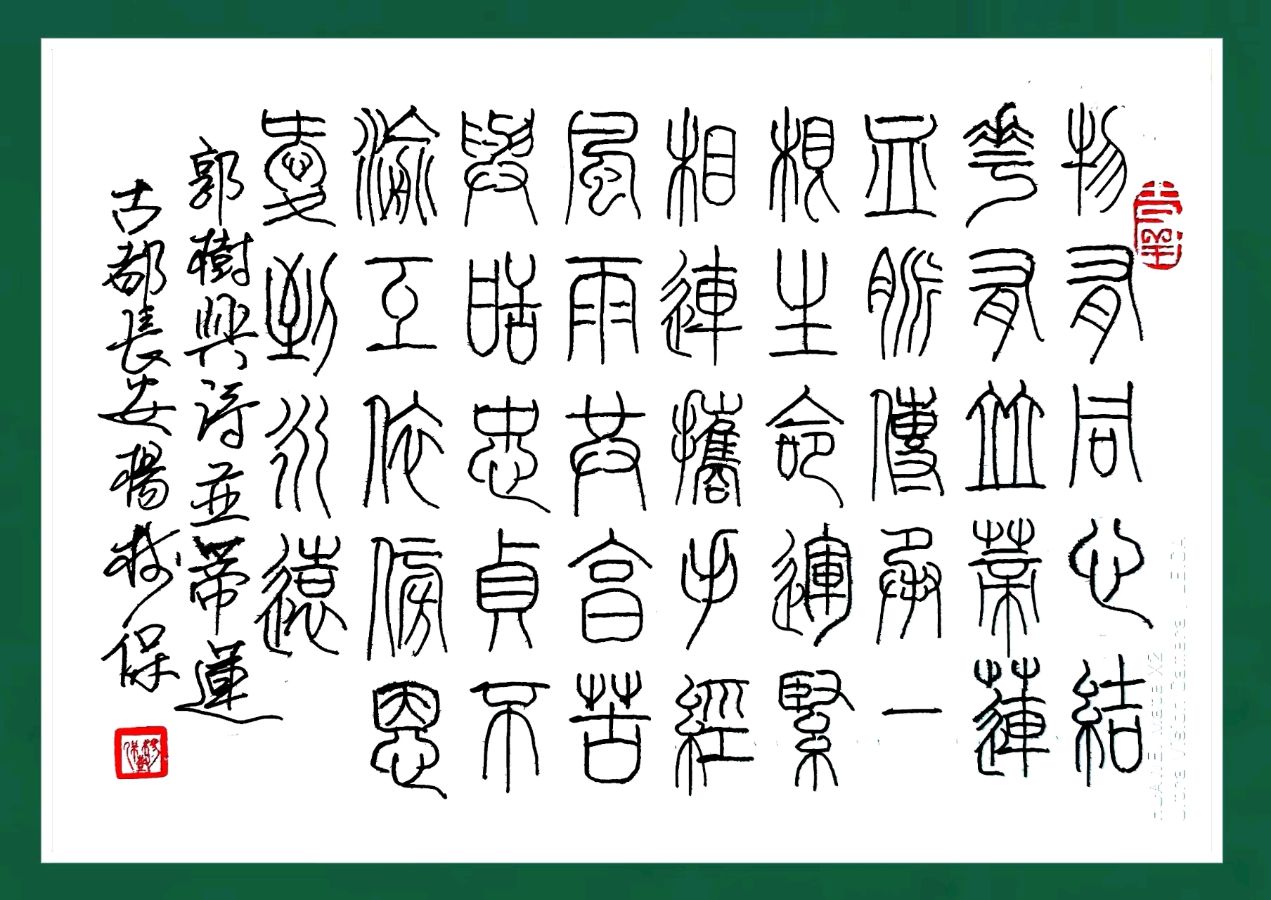 物有同心結
華有並蒂蓮
血脈傳承一
根生命運緊
相連攜手經
風雨共享苦
與甜忠貞不
渝互依偎恩
愛到永遠
郭樹興詩並蒂蓮
古都長安楊樹保